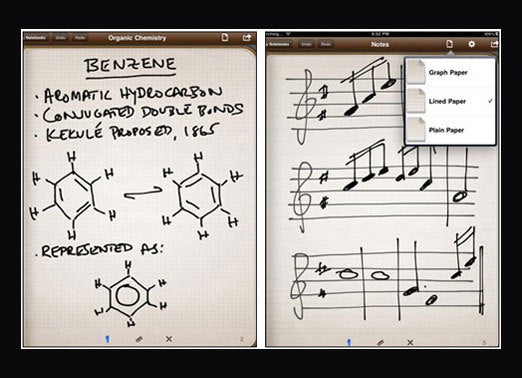 Notebooks
Undo
Redo
Organic Chemistry
BENZENE
· AROMATIC HYDROCARBON
· CONJUGATED DOUBLE BONDS
· KEKULÉ PROPOSED, 1865
H
H H
H H
H
H
H H
H H
H
· REPRESENTED AS:
H
H H
H H
H
2
6:52 PM
100%
Notebooks
Undo
Redo
Notes
Graph Paper
Lined Paper ✓
Plain Paper
5